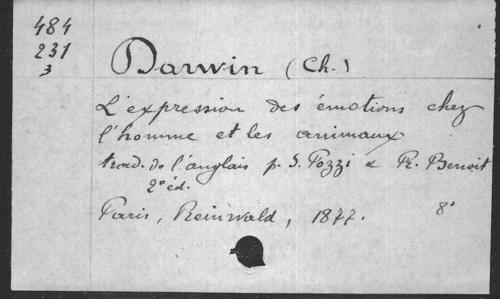 484
231
3
Darwin (Ch.)
L'expression des émotions chez
l'homme et les animaux
trad. de l'anglais p. S. Pozzi & R. Benoit
2e éd.
Paris, Reinwald, 1877. 8°